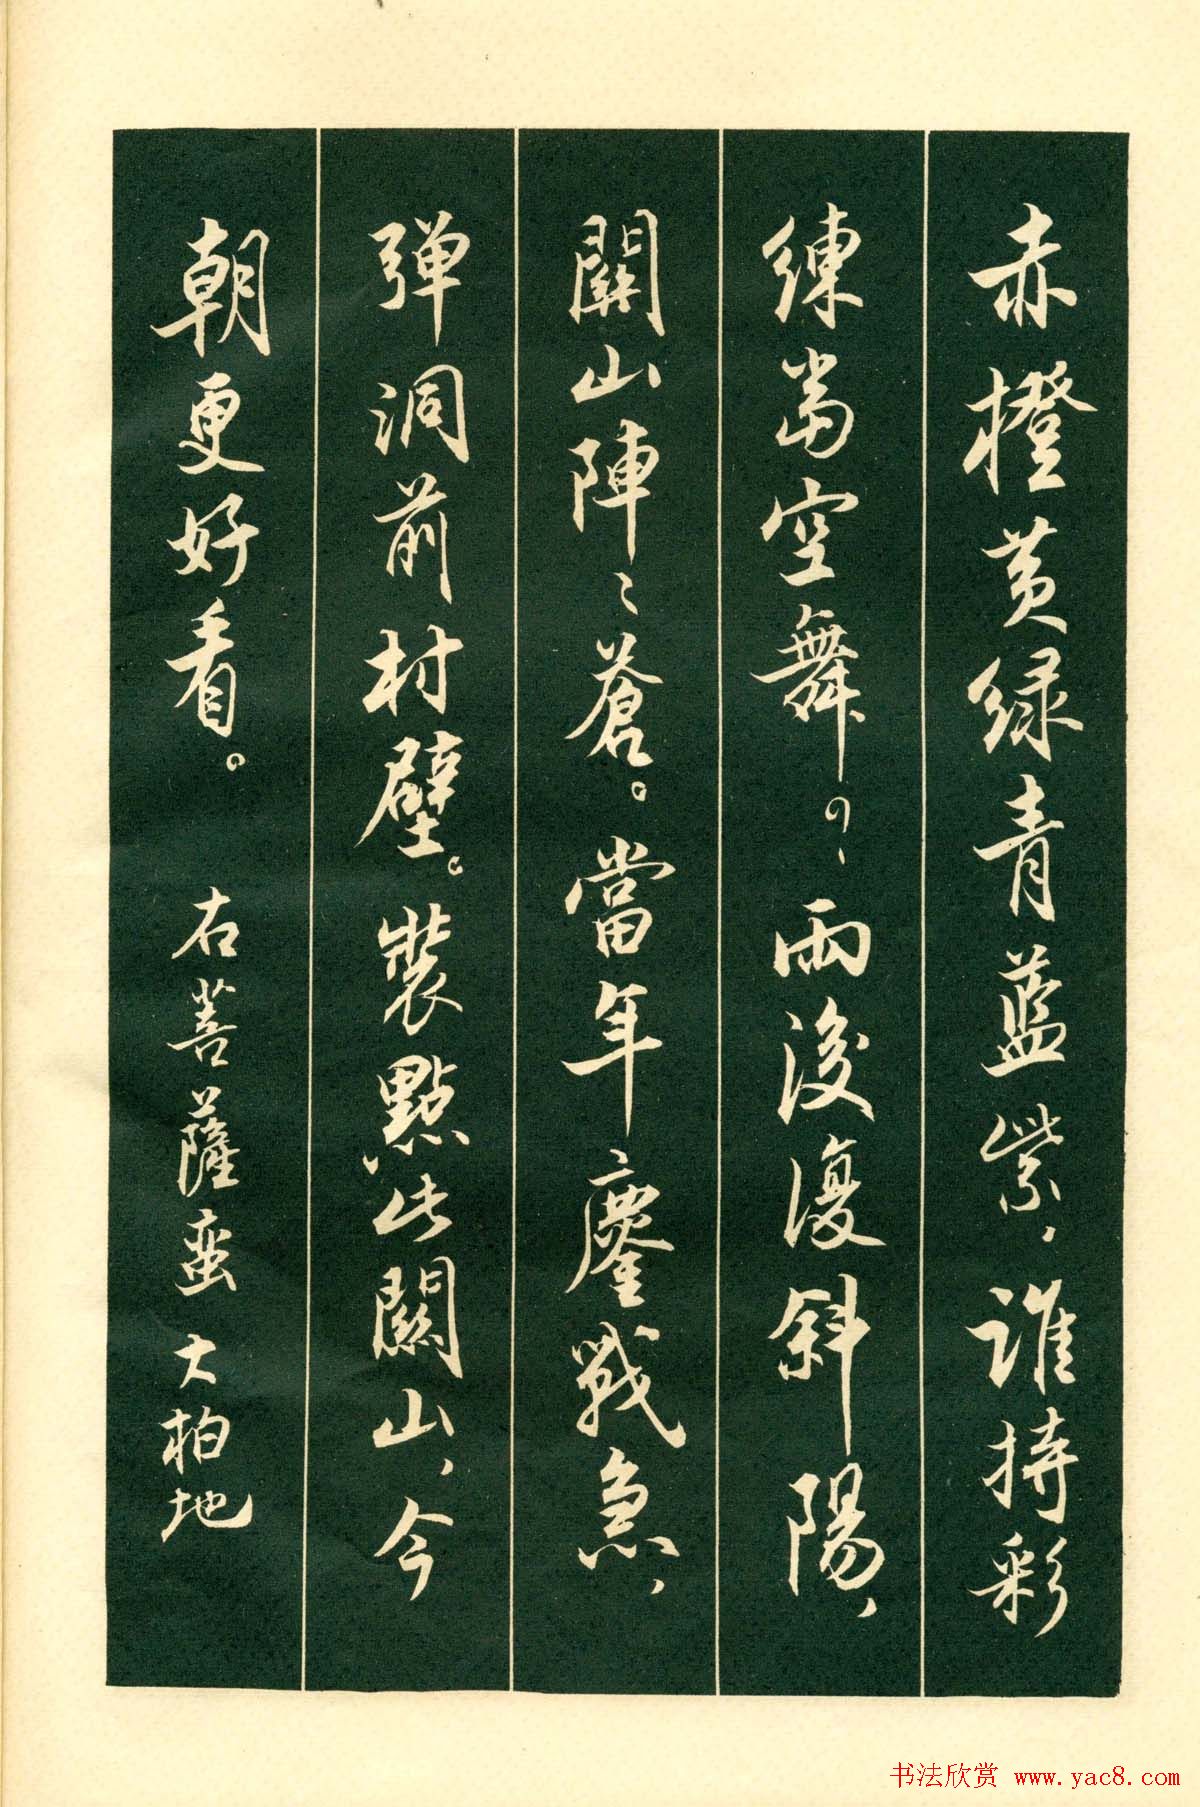 赤橙黄绿青藍紫,谁持彩
練當空舞?雨後復斜陽,
關山陣〻蒼。當年鏖戰急,
弹洞前村壁。裝點此關山,今
朝更好看。 右菩薩蛮 大柏地
书法欣赏 www.yac8.com